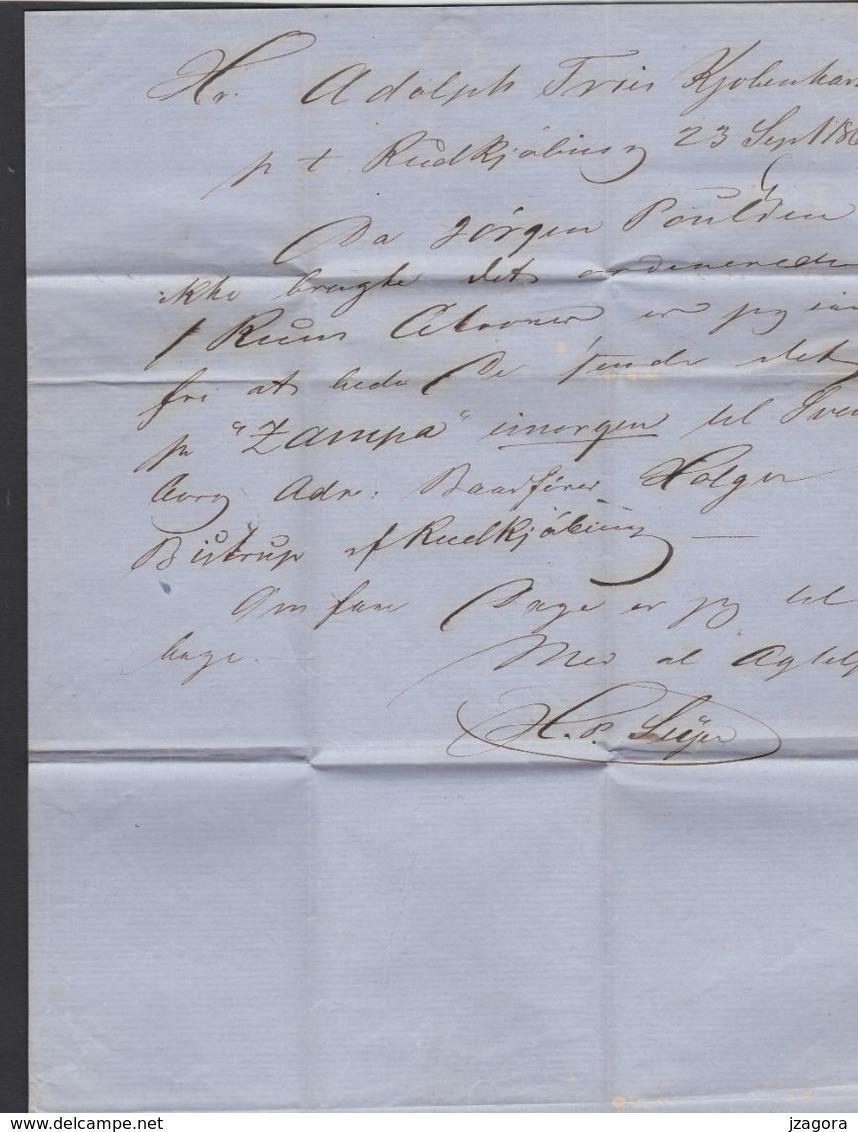 Hr. Adolph Trier Kjobenhavn
p t Rudkjöbing 23 Sept 186
Da Jörgen Poulsen
ikke bragte det ordinerede
f
fri at bede De sende det
pr "Zampa" imorgen til Sven
borg Adr: Baadfører Holger
Bistrup af Rudkjöbing —
Om faae Dage er jeg til
bage. — Med al Agtelse
H. P.
delcampe.net
jzagora